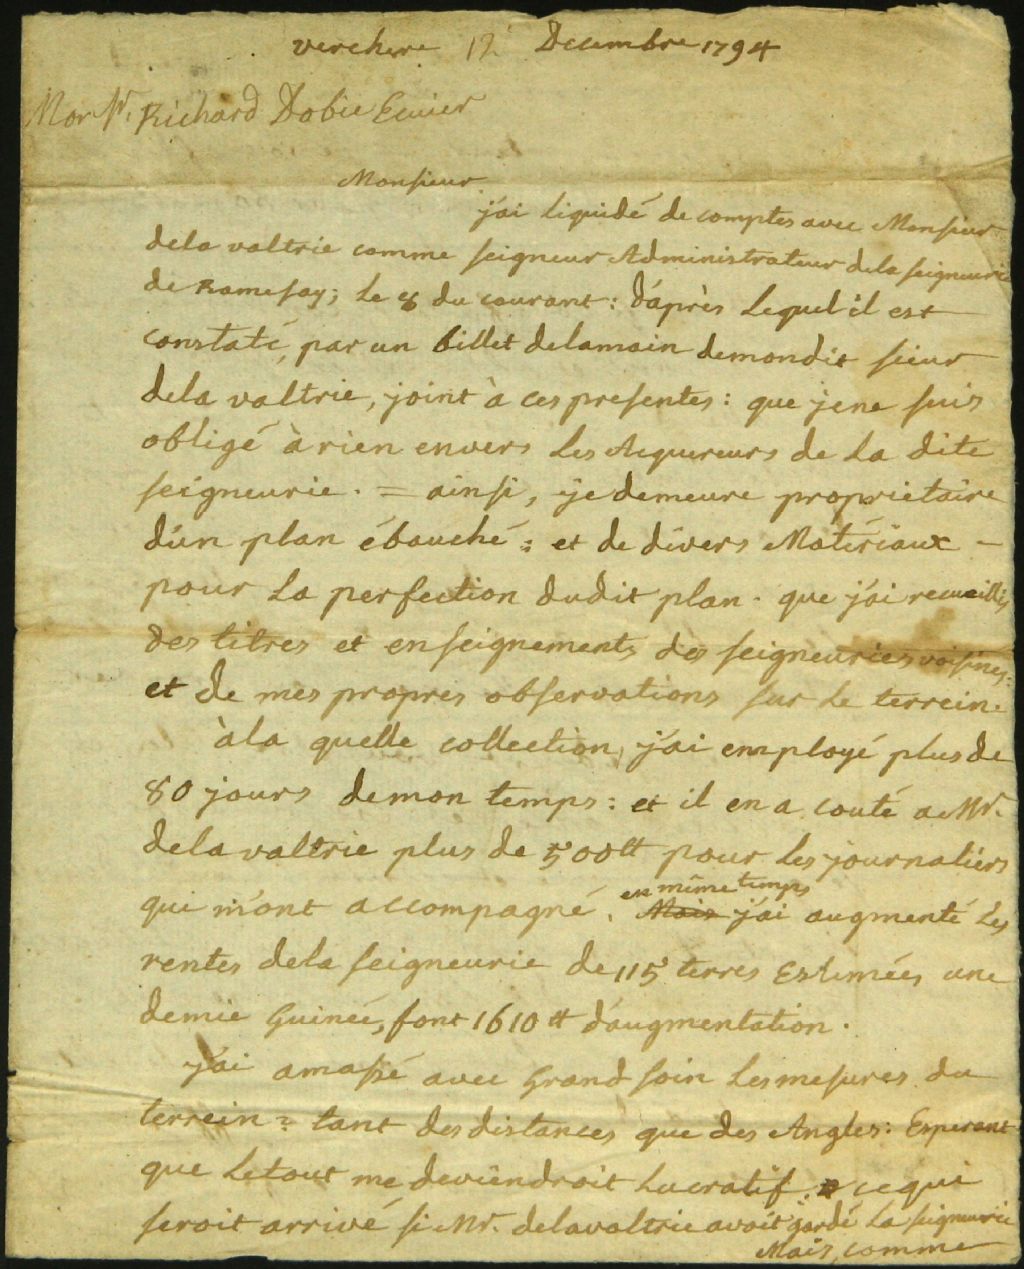 verchere 12 Decembre 1794
Mor Mr. Richard Dobie Ecuier
Monsieur
j'ai liquidé de comptes avec Monsieur
dela valtrie comme seigneur Administrateur dela seigneurie
de Ramesay; le 8 du courant: d'après lequel il est
constaté, par un billet delamain demondit sieur
dela valtrie, joint à ces presentes: que jene suis
obligé à rien envers les Acquereurs de la dite
seigneurie. = ainsi, je demeure proprietaire
d'un plan ébauché; et de divers Matériaux –
pour la perfection dudit plan. que j'ai recueillis
des titres et enseignements des seigneuries voisines:
et de mes propres observations sur le terrein.
àla quelle collection, j'ai employé plus de
80 jours demon temps: et il en a couté a Mr.
dela valtrie plus de 500tt pour les journaliers
qui m'ont accompagné. en même temps
Mais j'ai augmenté les
rentes dela seigneurie de 115 terres Estimées une
demie Guinée, font 1610tt d'augmentation.
j'ai amassé avec Grand soin les mesures du
terrein = tant des distances que des Angles: Esperant
que letout me deviendroit Lucratif. cequi
seroit arrivé si Mr. delavaltrie avoit gardé la seigneurie
Mais, comme